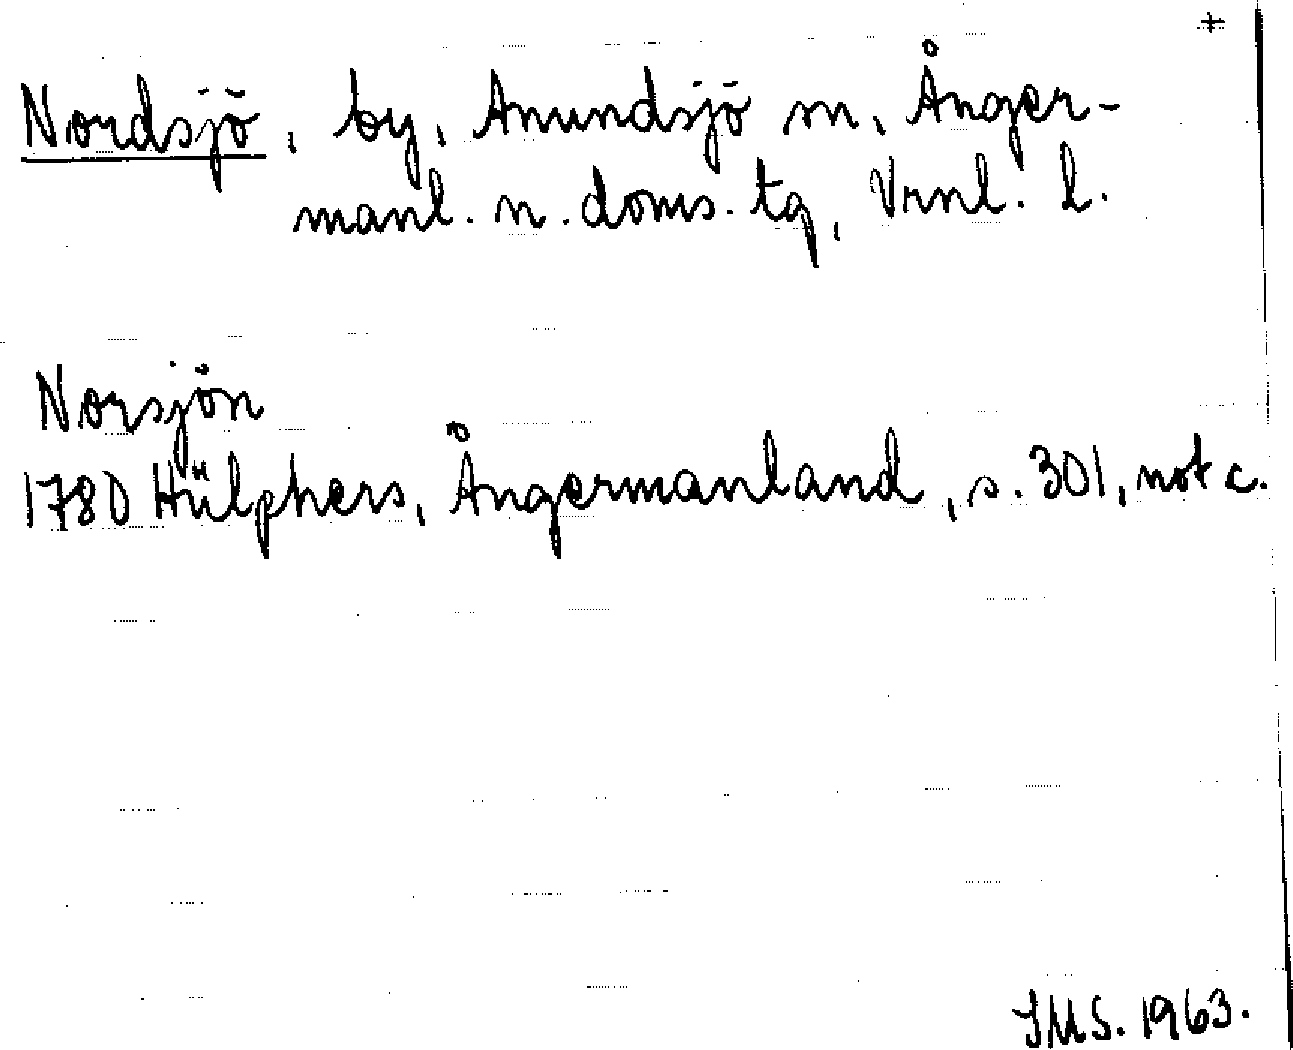 ‡
Nordsjö, by, Anundsjö sn, Ånger-
manl. n. doms. tg, Vrnl. l.
Norsjön
1780 Hülphers, Ångermanland, s. 301, not c.
SMS. 1963.